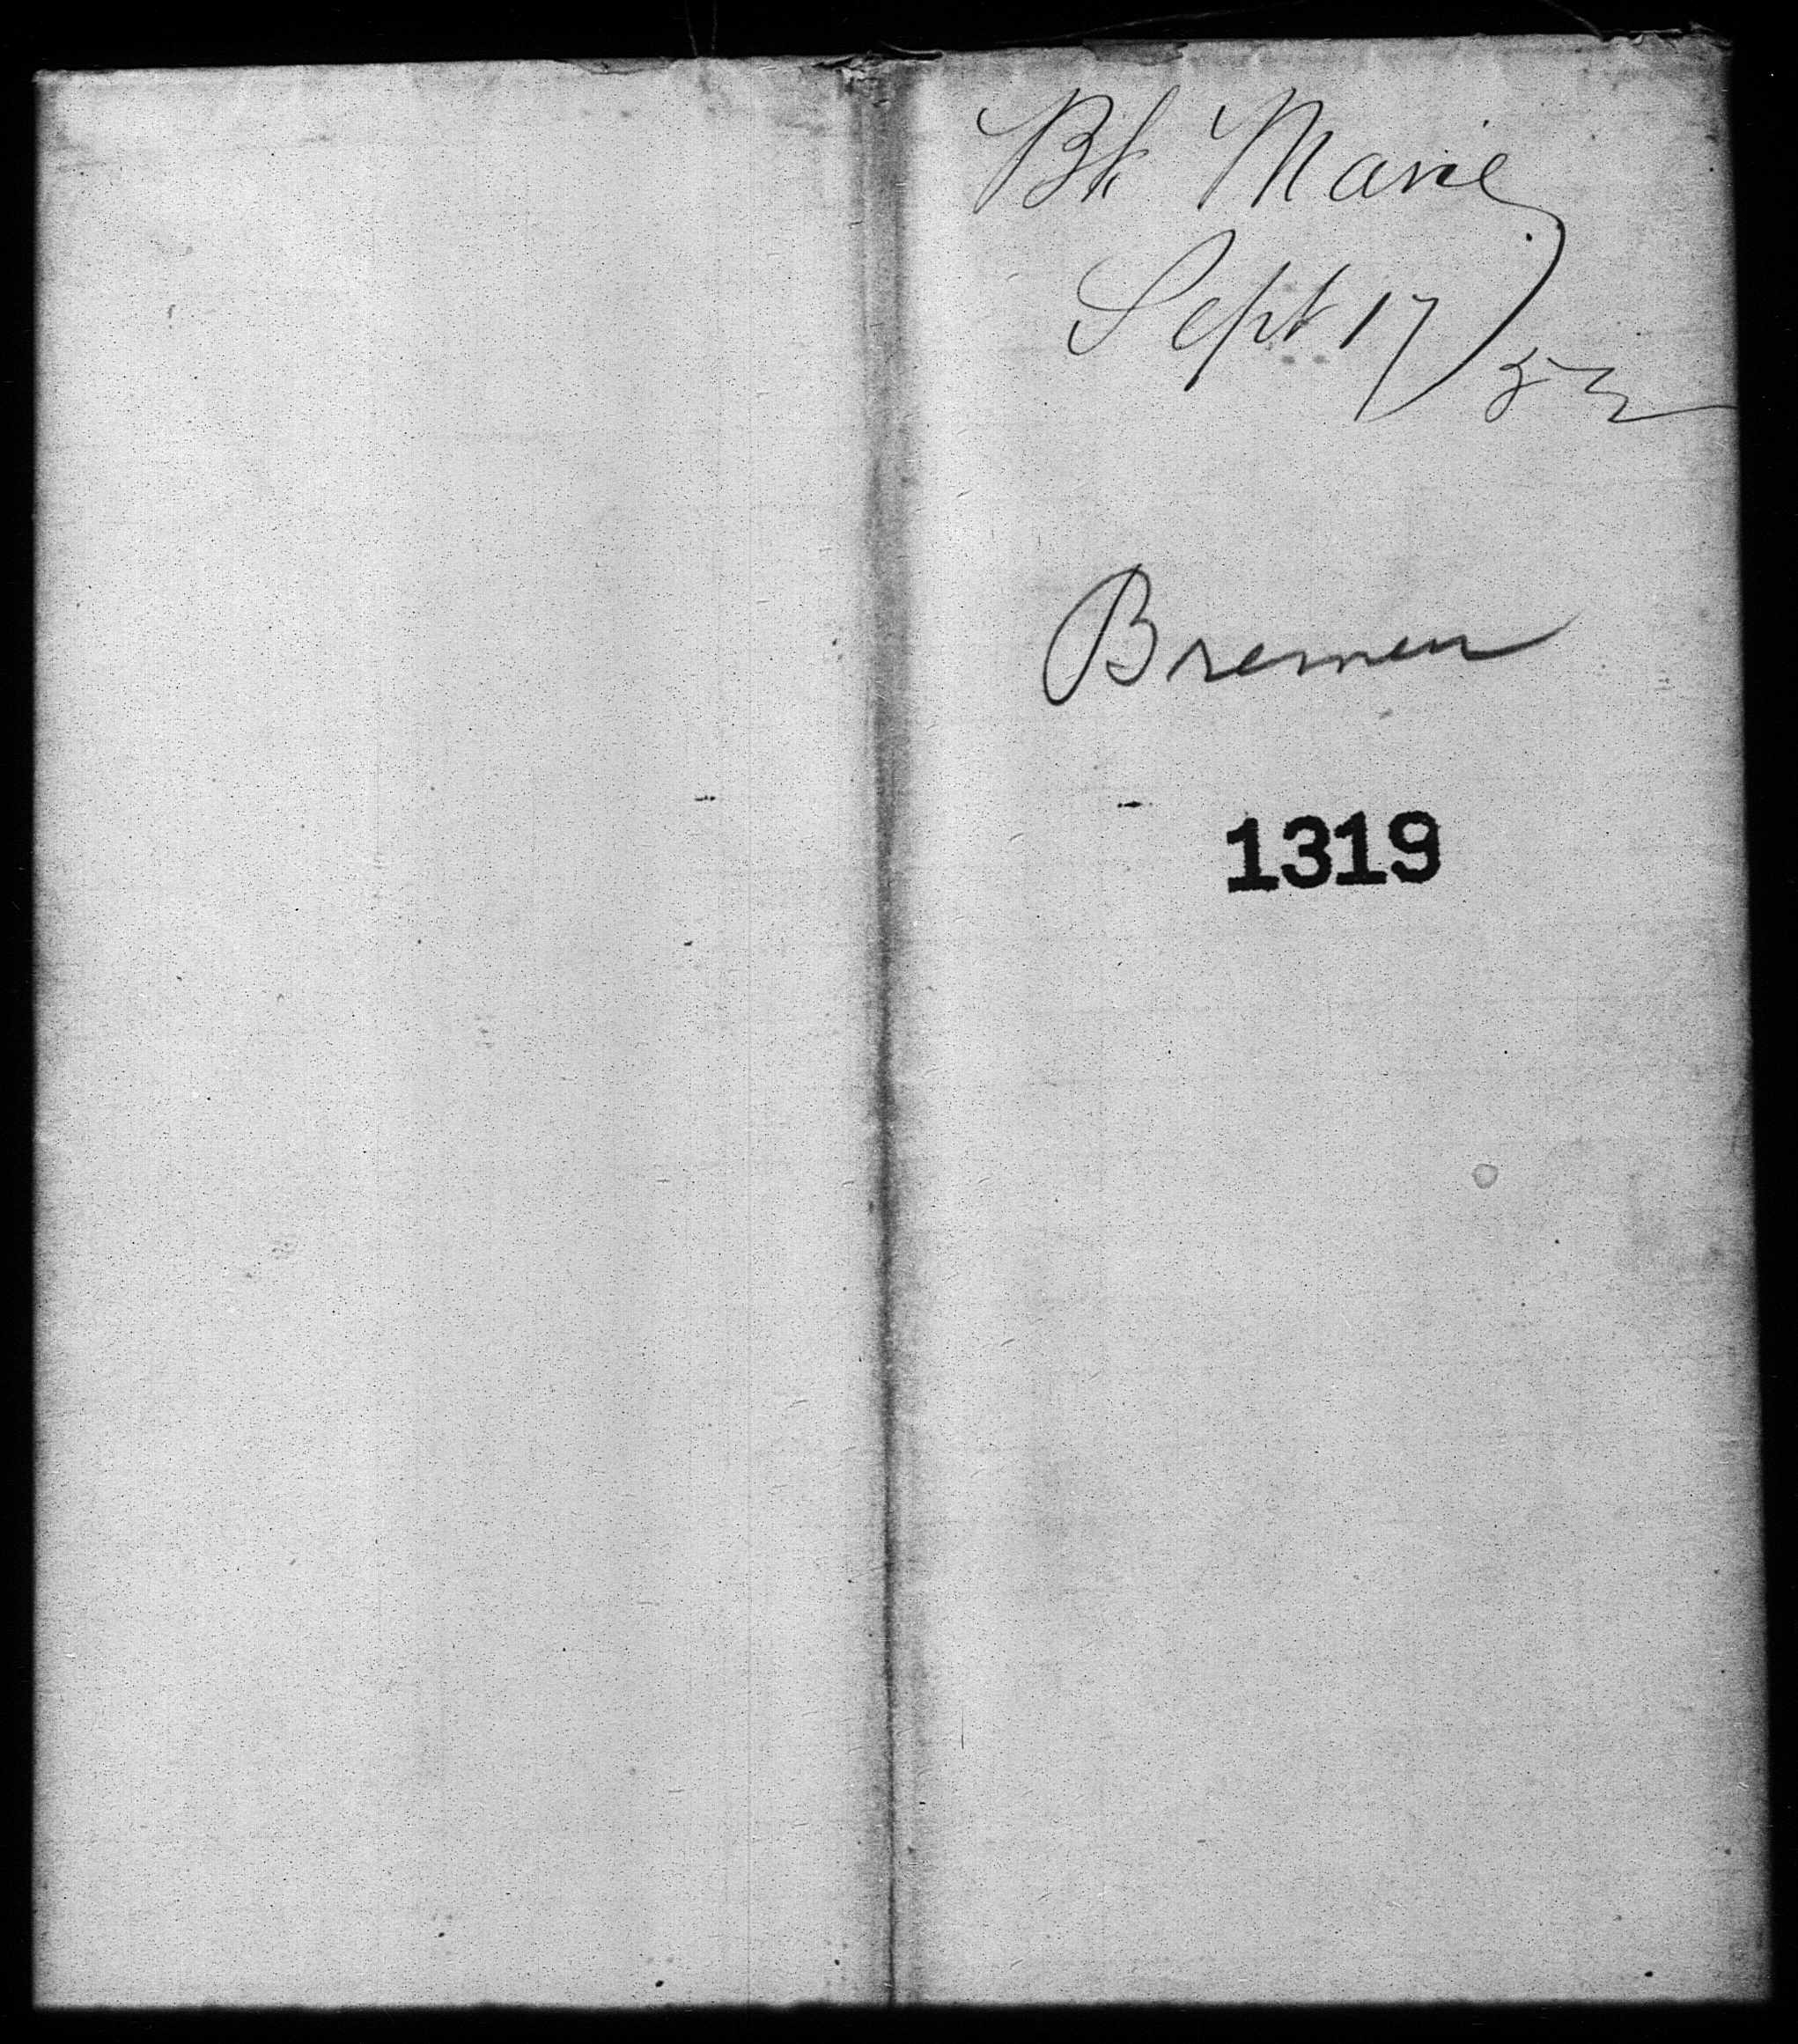 Bk Marie
Sept 17/52
Bremen
1319